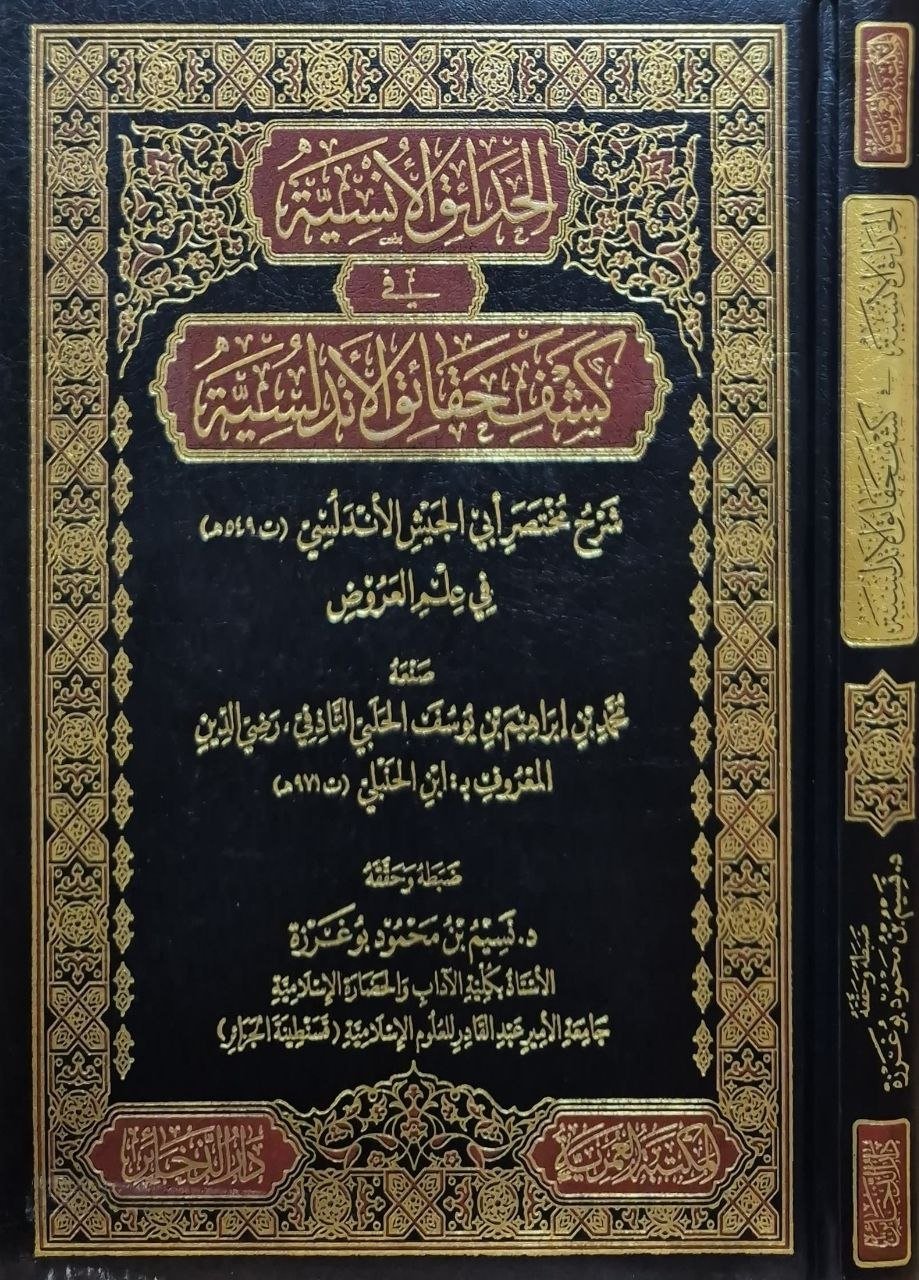 الحَدَائِقُ الأُنْسِيَّةُ
فِي
كَشْفِ حَقَائِقِ الأَنْدَلُسِيَّةِ
شَرْحُ مُخْتَصَرِ أَبِي الجَيْشِ الأَنْدَلُسِيِّ (ت ٥٤٩هـ)
فِي عِلْمِ العَرُوْضِ
صَنْعَةُ
مُحَمَّدِ بْنِ إِبرَاهِيْمَ بْنِ يُوسُفَ الحَلَبِيِّ التَّاذفِيِّ، رَضِيِّ الدِّيْنِ
المَعْرُوفِ بِـ: ابْنِ الحَنْبَلِيِّ (ت ٩٧١هـ)
ضَبَطَهُ وَحَقَّقَهُ
د. نَسِيْمُ بْنُ مَحْمُود بُوغَرْزَة
الأُسْتَاذُ بِكُلِّيَّةِ الآدَابِ وَالحَضَارَةِ الإِسْلَامِيَّةِ
جَامِعَةِ الأَمِيْرِ عَبْدِ القَادِرِ لِلعُلُومِ الإِسْلَامِيَّةِ (قَسَنْطِيْنَةَ الجَزَائِرِ)
المكتبة العمرية
دار الذخائر
المكتبة العمرية
الحدائق الأنسية في كشف حقائق الأندلسية
ضبطه وحققه
د. نسيم بن محمود بوغرزة
دار الذخائر